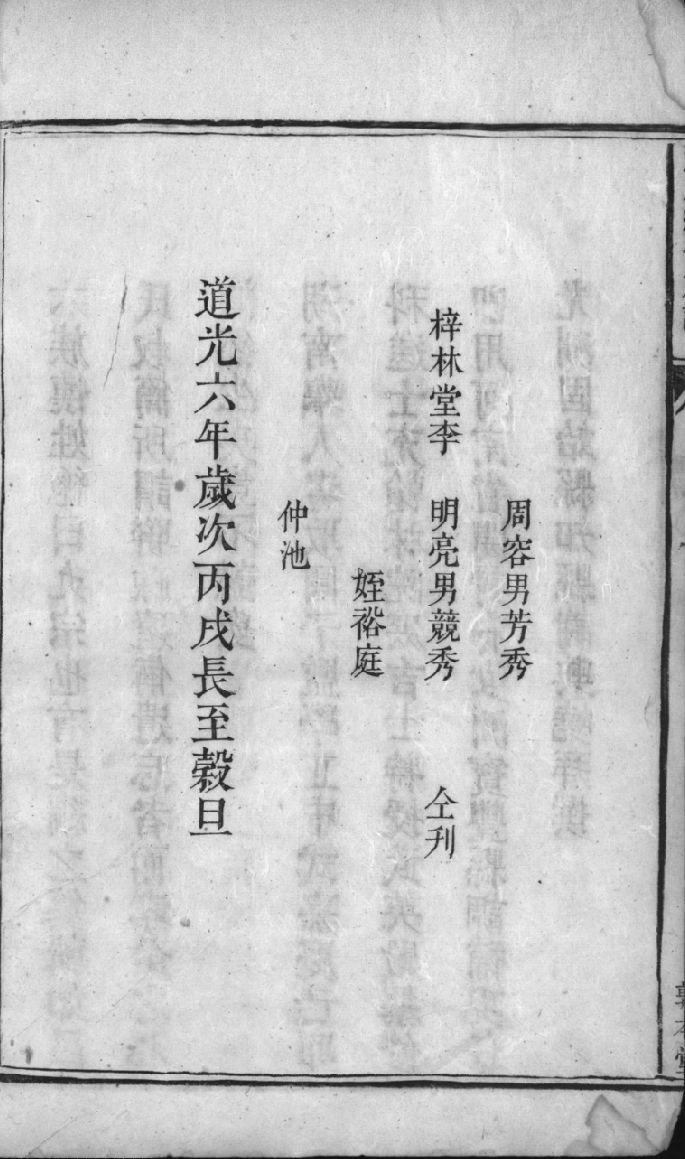 周容男芳秀
梓林堂李 明亮男競秀 仝刋
姪裕庭
仲池
道光六年歲次丙戌長至穀旦